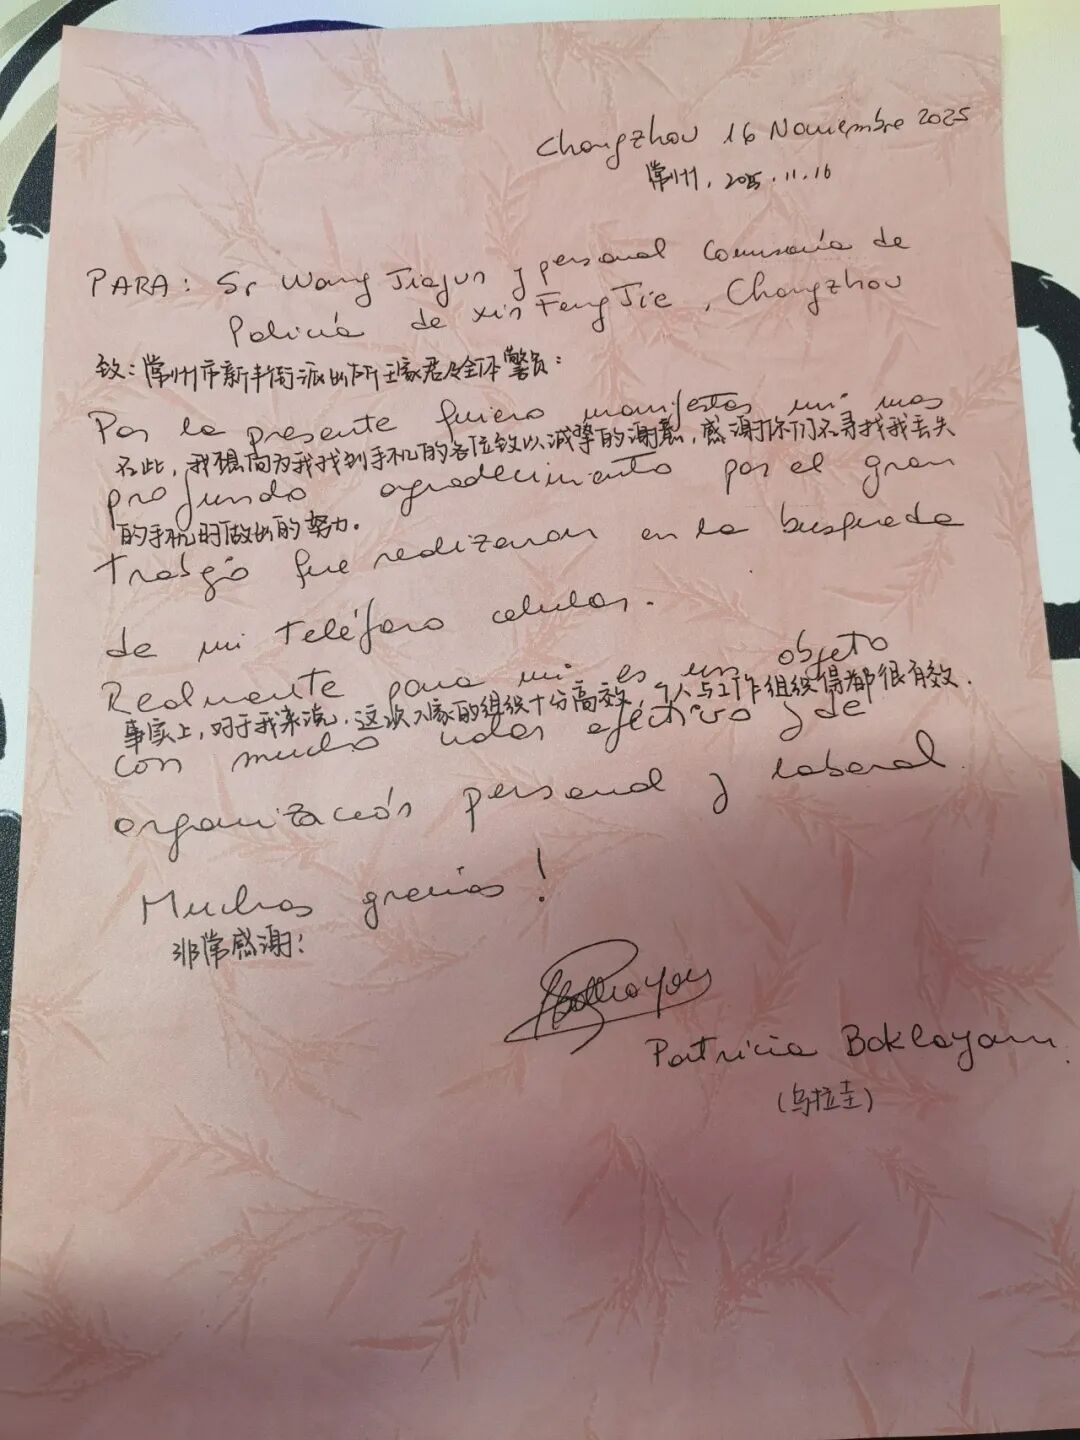 Changzhou 16 Noviembre 2025
常州，2025.11.16
PARA: Sr Wang Jiajun y personal Comisaría de
Policía de Xin Feng Jie, Changzhou
致：常州市新丰街派出所王家君及全体警员：
Por la presente quiero manifestar mi mas
在此，我想向为我找到手机的各位致以诚挚的谢意，感谢你们在寻找我丢失
profundo agradecimiento por el gran
的手机时做出的努力.
trabajo que realizaron en la busqueda
de mi teléfono celular.
Realmente para mi es un objeto
事实上，对于我来说，这次大家的组织十分高效，个人与工作组织得都很有效.
con mucho valor afectivo y de
organización personal y laboral.
Muchas gracias!
非常感谢！
Patricia Baklayan
(乌拉圭)